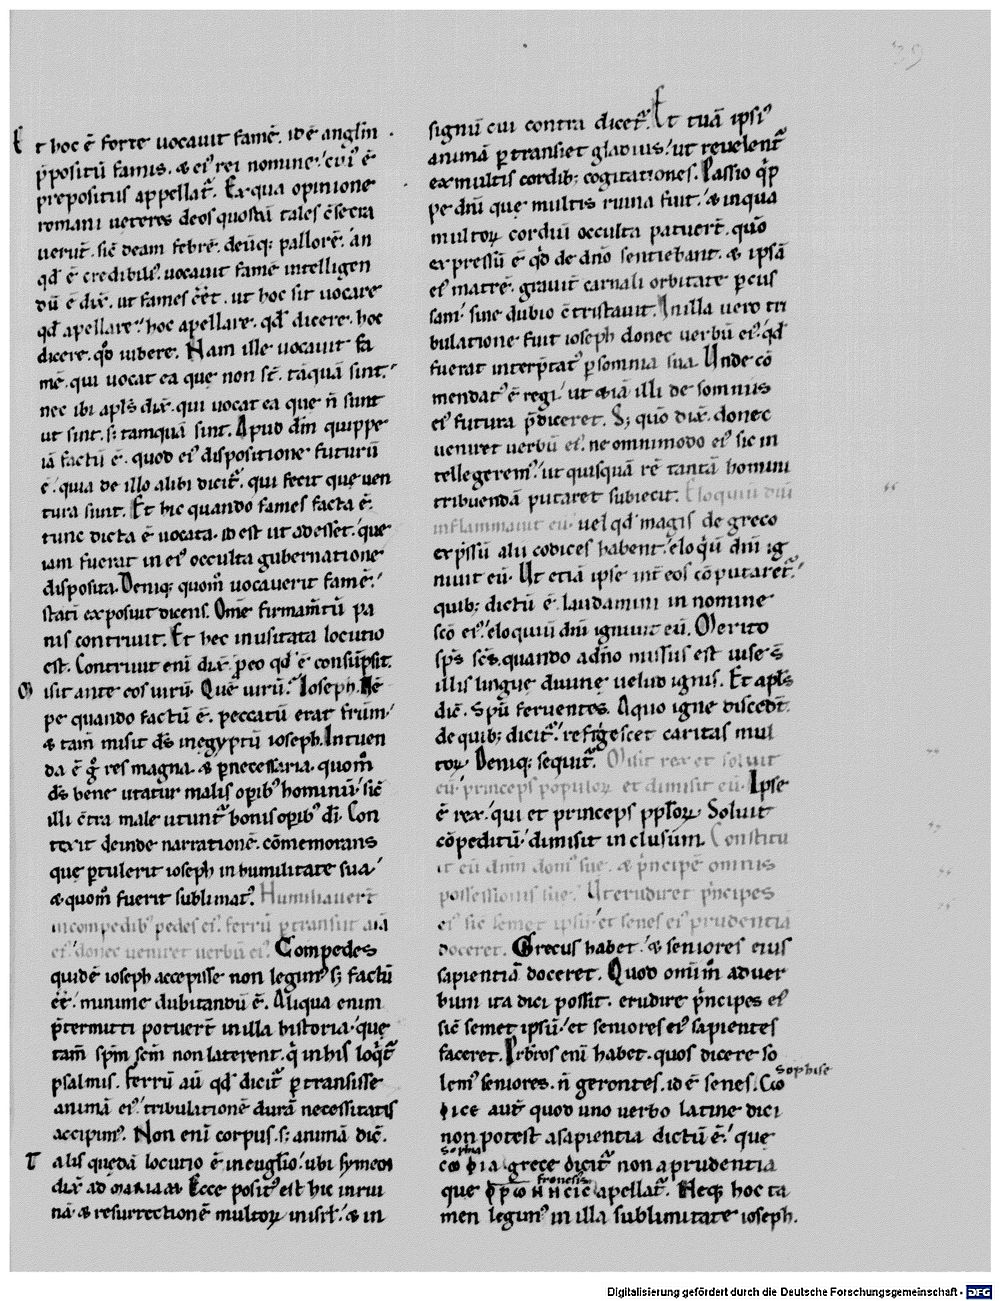 Et hoc ē forte uocauit famē. id ē anglm̄
p̄positū famis. & ei᷒ rei nomine. cui᷒ ē
prepositus appellat᷑. Ex qua opinione
romani ueteres deos quosdā tales ꝯsecra
uerūt. sic̄ deam febrē. deūq; pallorē. an
qd̄ ē credibili᷒. uocauit famē intelligen
dū ē dix̄. ut fames ēēt. ut hoc sit uocare
qd̄ apellare. hoc apellare. qd̄ dicere. hoc
dicere. qd̄ iubere. Nam ille uocauit fa
mē. qui uocat ea que non st̄. tāquā sint.
nec ibi apl̄s dix̄. qui uocat ea que n̄ sunt
ut sint. s; tamquā sint. Apud dm̄ quippe
iā factū ē. quod ei᷒ dispositione futurū
ē. quia de illo alibi dicit᷑. qui fecit que uen
tura sunt. Et hic quando fames facta ē.
tunc dicta ē uocata. id est ut adesset. que
iam fuerat in ei᷒ occulta gubernatione
disposita. Deniq; quom̄ uocauerit famē.
statī exposuit dicens. Om̄e firmam̄tū pa
nis contriuit. Et hec inusitata locutio
est. Contriuit eni dix̄. p eo qd̄ ē consūpsit.
Misit ante eos uirū. Quē uirū. Ioseph. Nē
pe quando factū ē. peccatū erat frūm.
& tam̄ misit ds̄ in egyptū ioseph. Intuen
da ē g̊ res magna. & p̄necessaria. quom̄
ds̄ bene utatur malis opib᷒ hominū. sic̄
illi ꝯtra male utunt᷑ bonis opib᷒ di. Con
texit deinde narrationē. cōmemorans
que ptulerit ioseph in humilitate sua.
& quom̄ fuerit sublimat᷒. Humiliauer̄t
in compedib᷒ pedes ei᷒. ferrū ptransiit aīā
ei᷒. donec ueniret uerbū ei᷒. Compedes
quidē ioseph accepisse non legim᷒ s; factū
ēē. minime dubitandū ē. Aliqua enim
p̄termitti potuer̄t in illa historia. que
tam̄ spm̄ scm̄ non laterent. q̇ in his loq̇t᷑
psalmis. Ferrū aū qd̄ dicit᷑ ptransisse
animā ei᷒. tribulationē durā necessitatis
accipim᷒. Non eni corpus. s; animā dic̄.
Talis quedā locutio ē in euglio. ubi symeon
dix̄ ad MARIAM Ecce posit᷒ est hic in rui
nā. & resurrectionē multoꝝ in isrl̄. & in
signū cui contra dicet᷑. Et tuā ipsi᷒
animā ptransiet gladius. ut reuelent᷑
ex multis cordib; cogitationes. Passio q̇p
pe dn̄i que multis ruina fuit. & in qua
multoꝝ cordiū occulta patuer̄t. quō
expressū ē qd̄ de dn̄o sentiebant. & ipsā
ei᷒ matrē. grauit᷑ carnali orbitate pcus
sam. sine dubio ꝯtristauit. In illa uero tri
bulatione fuit ioseph donec uerbū ei᷒. qd̄
fuerat interp̄tat᷒ p somnia sua. Unde cō
mendat᷒ ē regi. ut &iā illi de somnus
ei᷒ futura p̄diceret. S; quō dix̄. donec
ueniret uerbū ei᷒. ne omnimodo ei᷒ sic in
tellegerem᷒. ut quisquā rē tantā homini
tribuendā putaret subiecit. Eloquiū dn̄i
inflammauit eū. uel qd̄ magis de greco
exp̄ssū alii codices habent. eloq̇ū dn̄i ig
niuit eū. Ut etiā ipse int᷑ eos cōputaret᷑.
quib; dictū ē. laudamini in nomine
scō ei᷒. eloquiū dn̄i igniuit eū. Merito
sps̄ scs̄. quando a dn̄o missus est uise s̄
illis lingue diuine uelud ignis. Et apl̄s
dic̄. Spū feruentes. A quo igne disced̄t.
de quib; dicit᷑. refrigescet caritas mul
toꝝ. Deniq; sequit᷑. Misit rex et soluit
eū. princeps populoꝝ et dimisit eū. Ipse
ē rex. qui et princeps pploꝝ. Soluit
cōpeditū. dimisit inclusum. Constitu
it eū dnm̄ dom᷒ sue. & p̄ncipē omnis
possessionis sue. Ut erudiret p̄ncipes
ei᷒ sic̄ semet ipsū. et senes ei᷒ prudentiā
doceret. Grecus habet. & seniores eius
sapientiā doceret. Quod omīm̄ ad uer
bum ita dici possit. erudire p̄ncipes ei᷒
sic̄ semet ipsū. et seniores ei᷒ sapientes
faceret. Prb̄ros eni habet. quos dicere so
lem᷒ seniores. n̄ gerontes. id ē senes. Cω Sophise
ϕιce aut̄ quod uno uerbo latine dici
non potest a sapientia dictū ē. que
Sophia
cωϕιa grece dicit᷑ non a prudentia
fronesis
que ϕρωnηcιc apellat᷑. Neq; hoc ta
men legim᷒ in illa sublimitate ioseph.
Digitalisierung gefördert durch die Deutsche Forschungsgemeinschaft - DFG